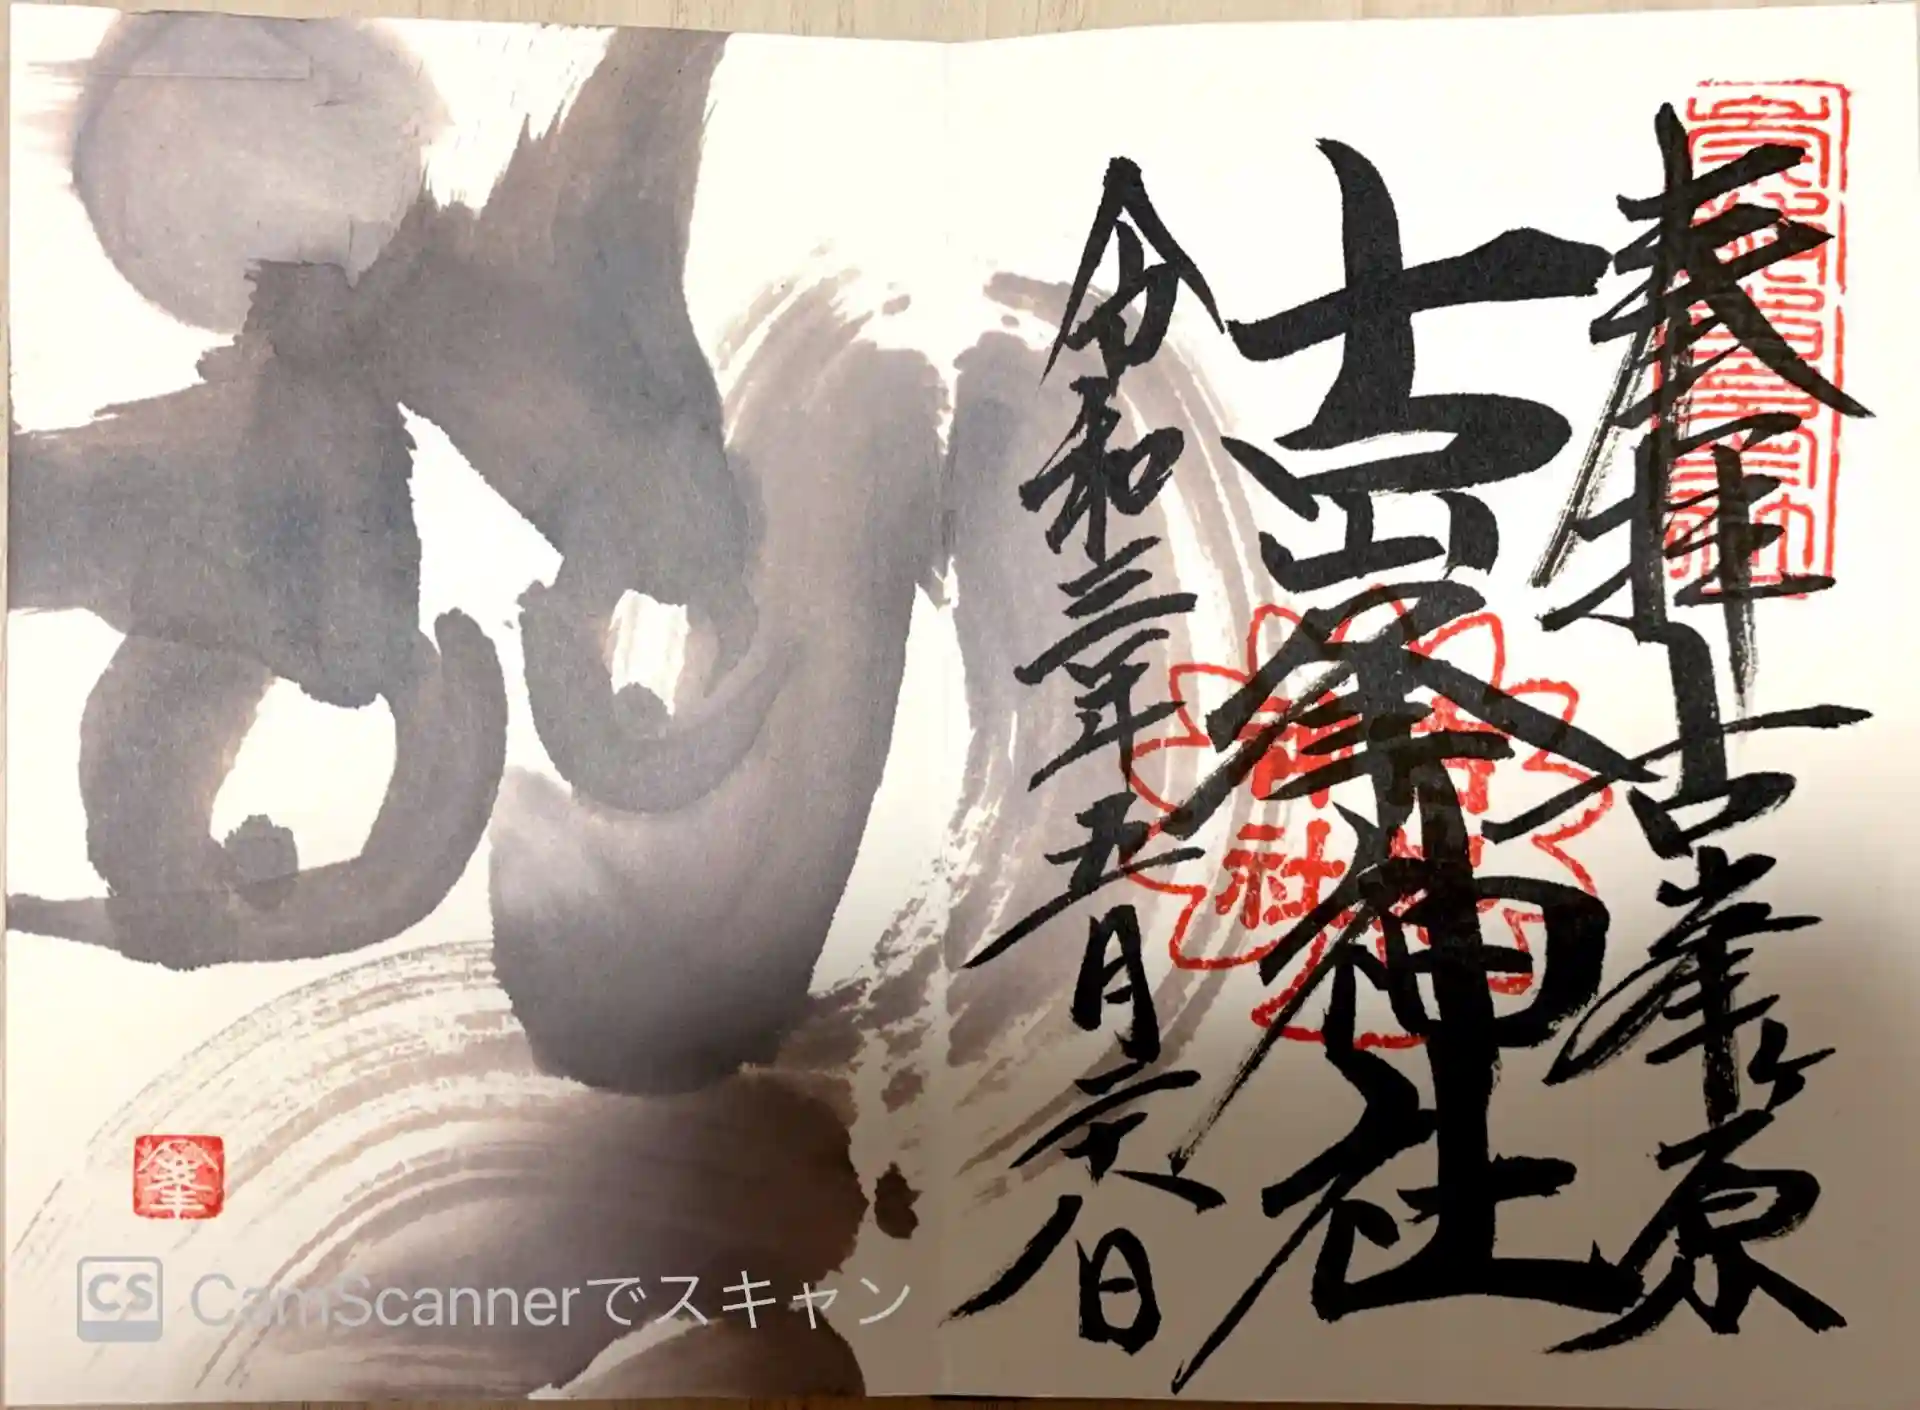 奉拝 古峯ヶ原
古峯神社
令和三年五月二十八日
古峯神社
峯
CS CamScannerでスキャン